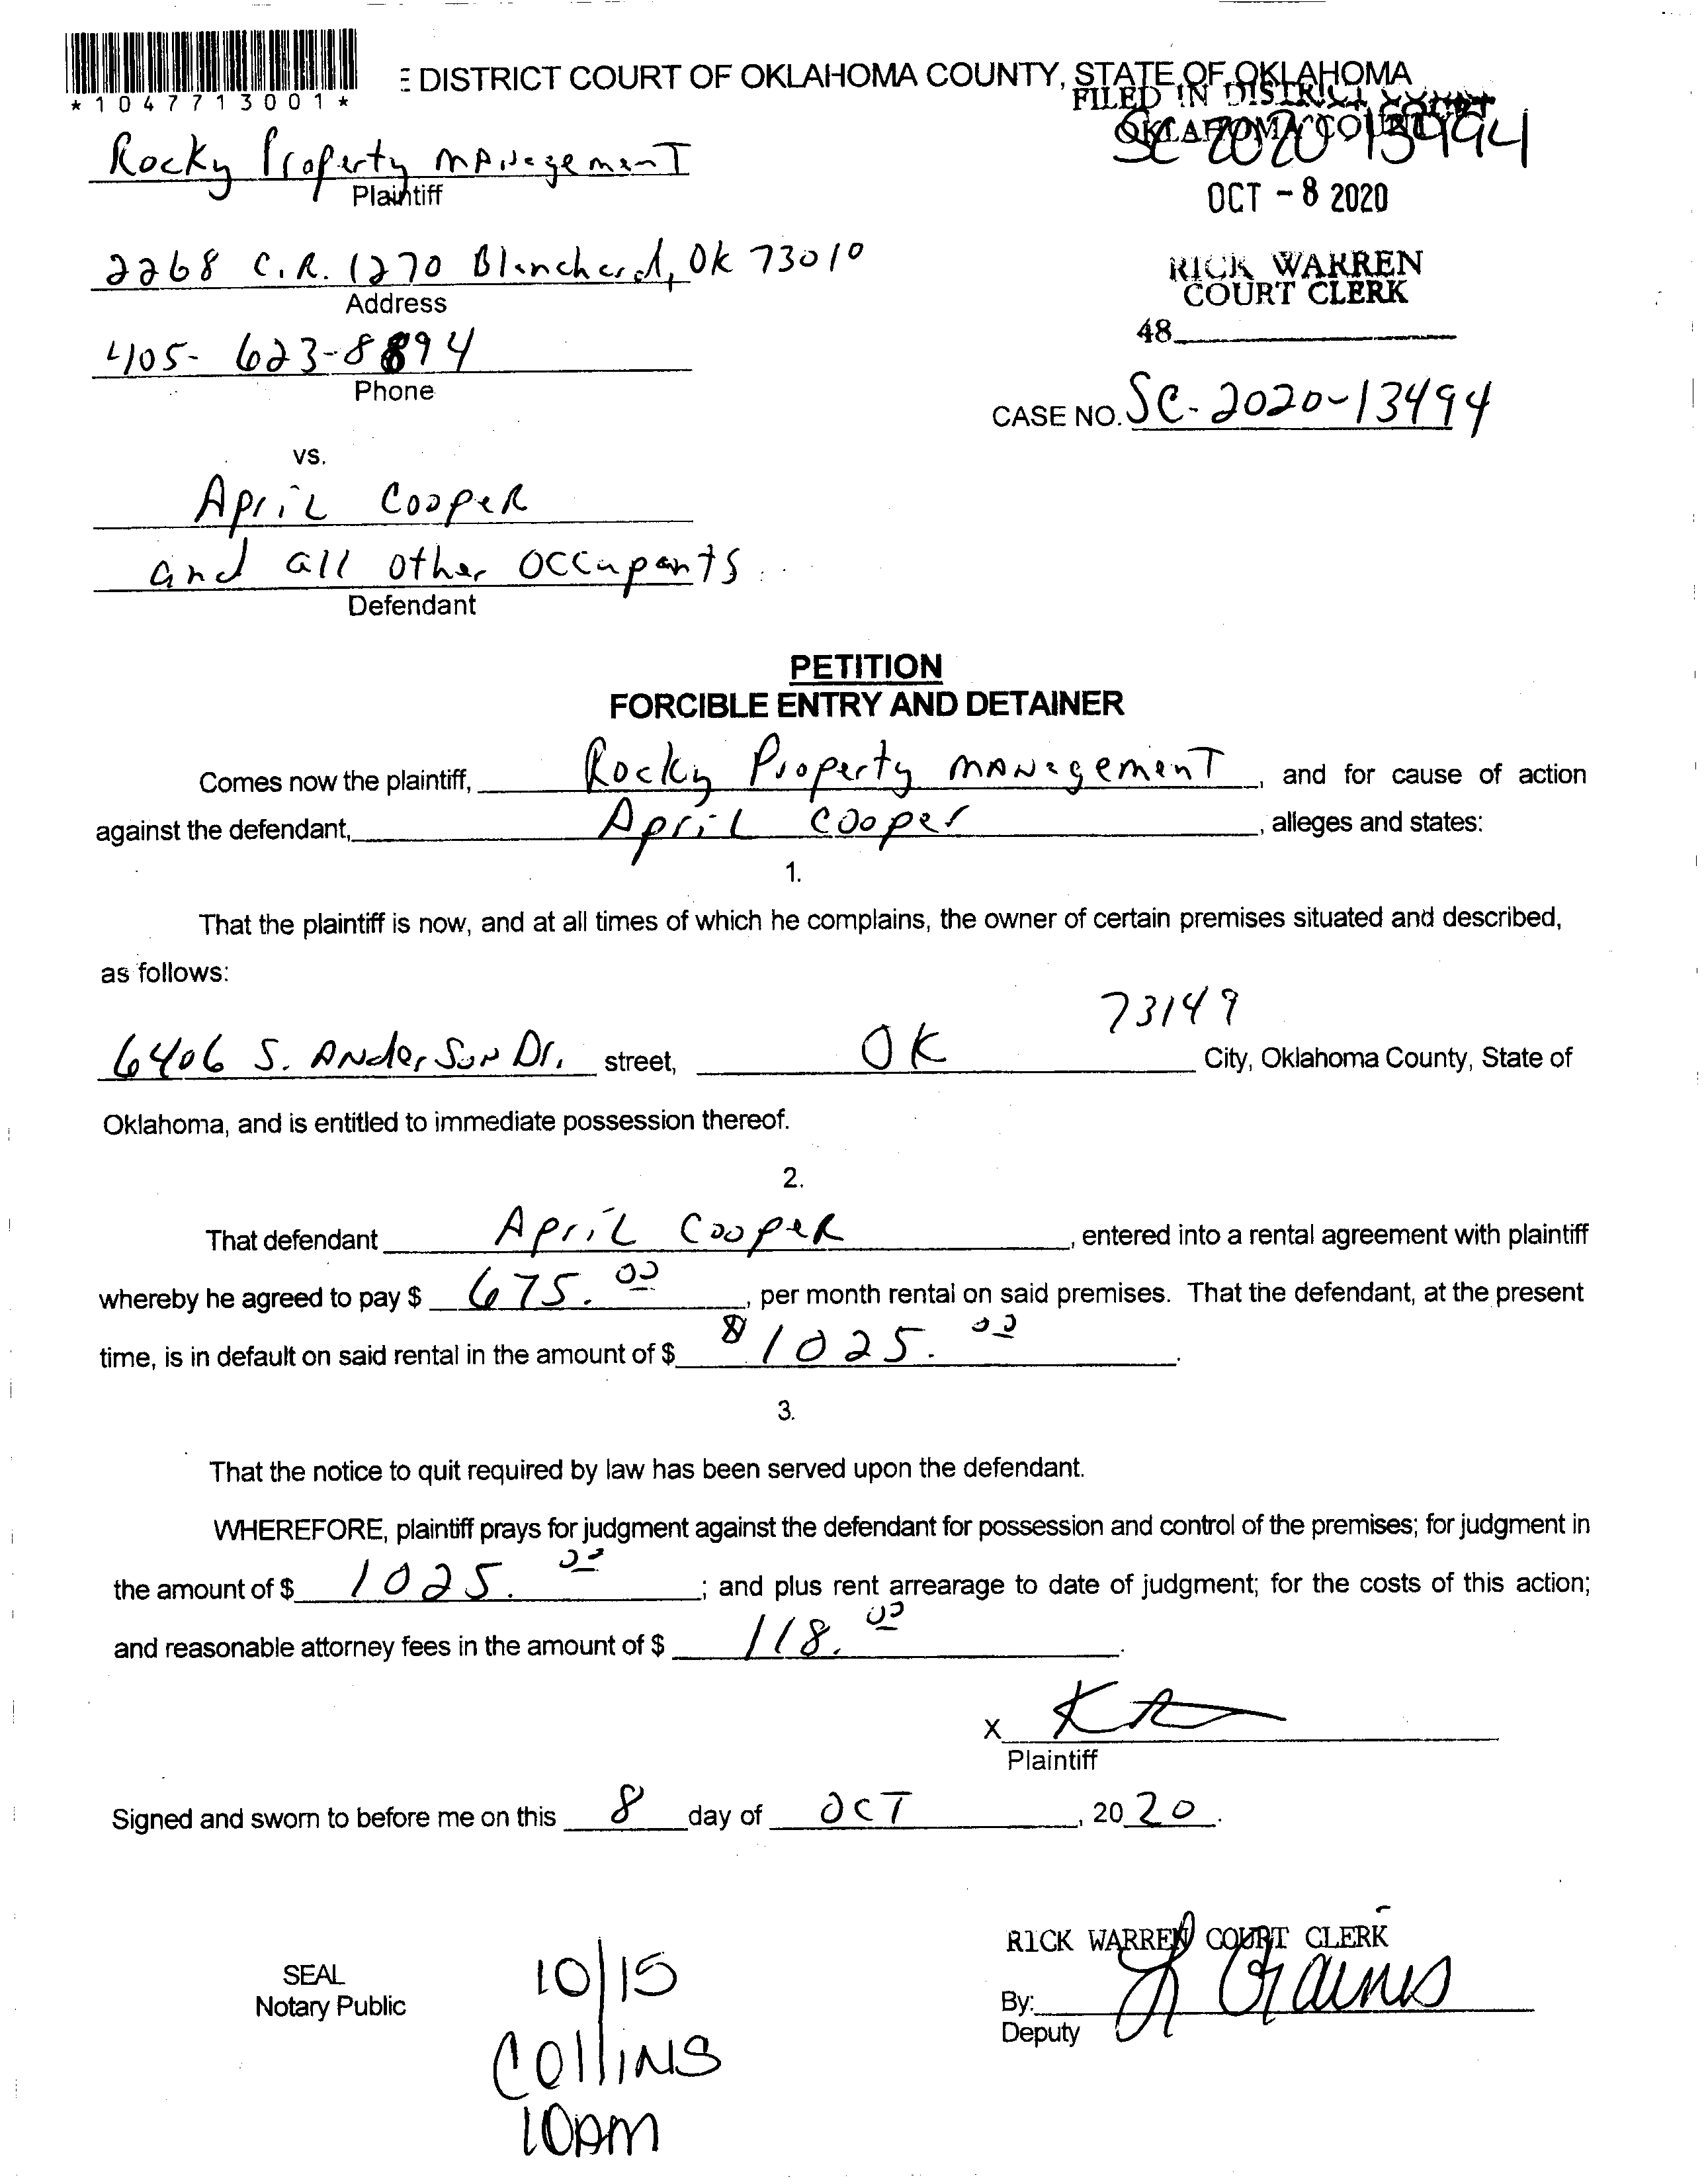 *1047713001*
E DISTRICT COURT OF OKLAHOMA COUNTY, STATE OF OKLAHOMA
FILED IN DISTRICT COURT
OKLAHOMA COUNTY
SC-2020-13494
Rocky Property Management
Plaintiff
OCT - 8 2020
2268 C.R. 1270 Blanchard, Ok 73010
Address
RICK WARREN
COURT CLERK
48
405-623-8894
Phone
CASE NO. SC-2020-13494
vs.
April Cooper
and all other occupants
Defendant
PETITION
FORCIBLE ENTRY AND DETAINER
Comes now the plaintiff, Rocky Property Management, and for cause of action
against the defendant, April Cooper, alleges and states:
1.
That the plaintiff is now, and at all times of which he complains, the owner of certain premises situated and described,
as follows:
73149
6406 S. Anderson Dr. street, OK City, Oklahoma County, State of
Oklahoma, and is entitled to immediate possession thereof.
2.
That defendant April Cooper, entered into a rental agreement with plaintiff
whereby he agreed to pay $ 675.00, per month rental on said premises. That the defendant, at the present
time, is in default on said rental in the amount of $ $1025.00.
3.
That the notice to quit required by law has been served upon the defendant.
WHEREFORE, plaintiff prays for judgment against the defendant for possession and control of the premises; for judgment in
the amount of $ 1025.00; and plus rent arrearage to date of judgment; for the costs of this action;
and reasonable attorney fees in the amount of $ 118.00.
X
Plaintiff
Signed and sworn to before me on this 8 day of OCT, 2020.
RICK WARREN COURT CLERK
SEAL
Notary Public
10/15
By:
Deputy
Collins
10am